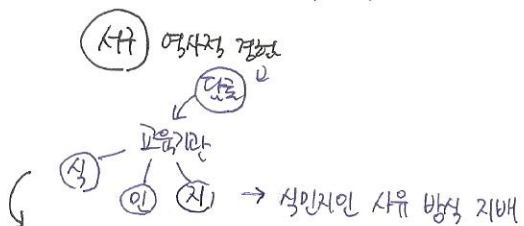 서구 역사적 경험
담론
교육기관
식
인 지 → 식민지인 사유 방식 지배